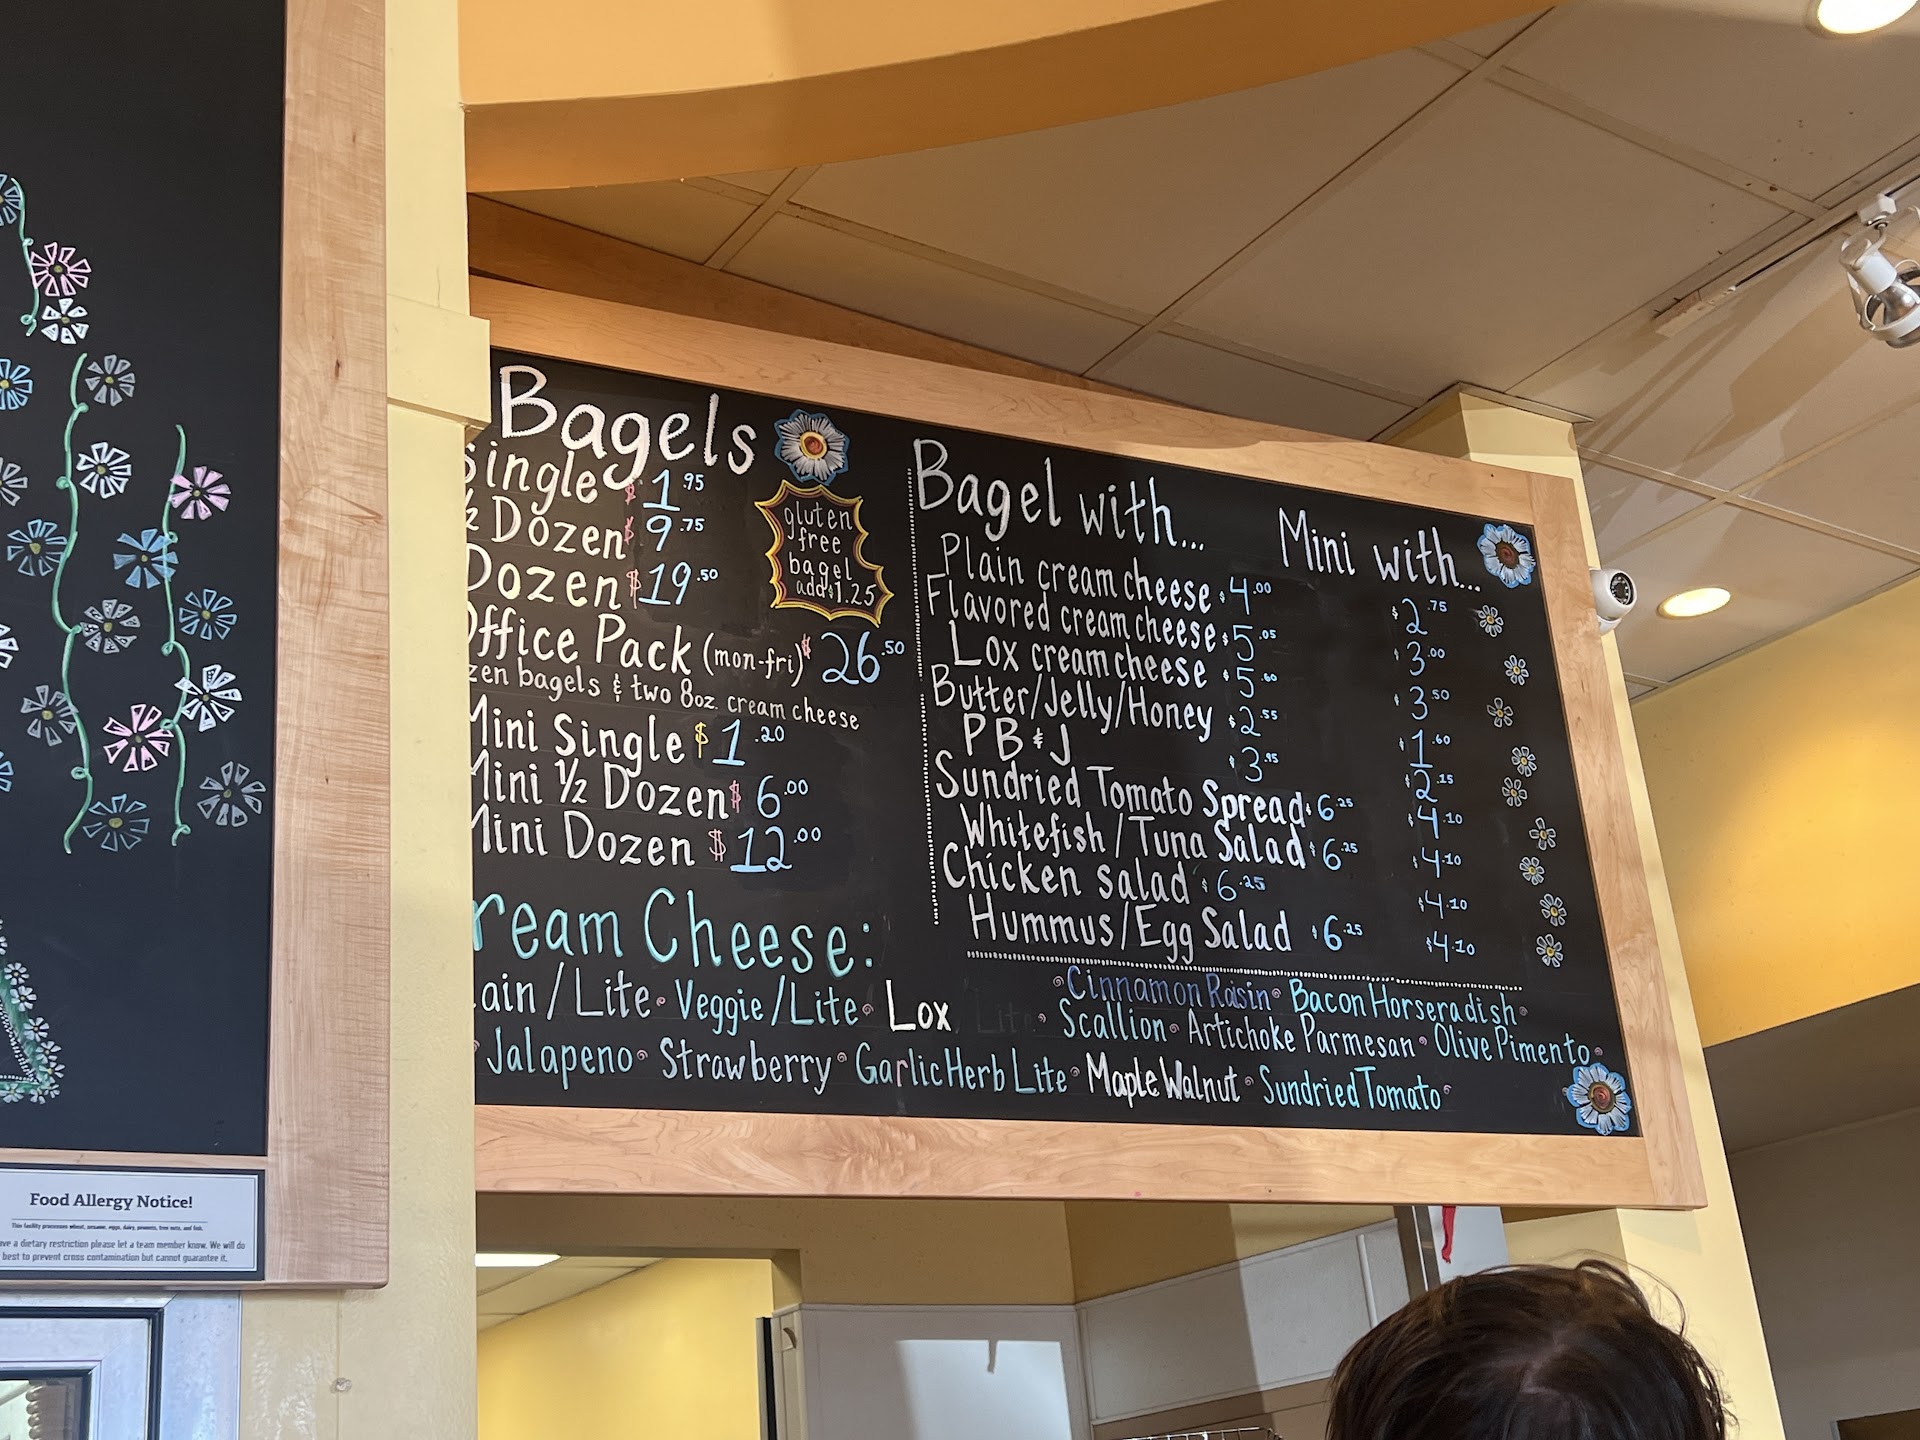 Bagels
Single $1.95
½ Dozen $9.75
Dozen $19.50
Office Pack (mon-fri) $26.50
zen bagels & two 8oz. cream cheese
Mini Single $1.20
Mini ½ Dozen $6.00
Mini Dozen $12.00
gluten
free
bagel
add $1.25
Bagel with... Mini with...
Plain cream cheese $4.00 $2.75
Flavored cream cheese $5.05 $3.00
Lox cream cheese $5.60 $3.50
Butter/Jelly/Honey $2.55 $1.60
PB & J $3.95 $2.15
Sundried Tomato Spread $6.25 $4.10
Whitefish/Tuna Salad $6.25 $4.10
Chicken salad $6.25 $4.10
Hummus/Egg Salad $6.25 $4.10
ream Cheese:
Cinnamon Raisin Bacon Horseradish
ain/Lite Veggie/Lite Lox Lite Scallion Artichoke Parmesan Olive Pimento
Jalapeno Strawberry Garlic Herb Lite Maple Walnut Sundried Tomato
Food Allergy Notice!
This facility processes wheat, sesame, eggs, dairy, peanuts, tree nuts, and fish.
ave a dietary restriction please let a team member know. We will do
best to prevent cross contamination but cannot guarantee it.